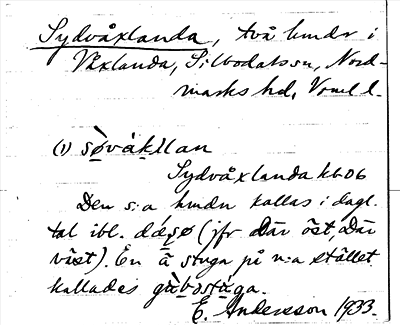 Sydvåxlanda, två hmdr i
Våxlanda, Silbodals sn, Nord-
marks hd, Vrml l.
(1) sø̀våkslan
Sydvåxlanda kb 06
Den s:a hmdn kallas i dagl.
tal ibl. (jfr Där öst, Där
väst). En stuga på n:a stället
kallades
E. Andersson 1933.